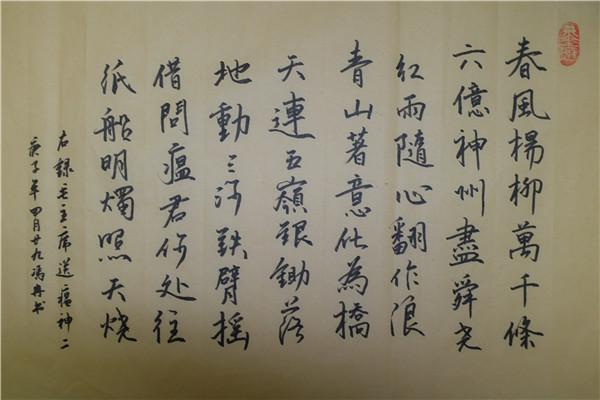 春風楊柳萬千條
六億神州盡舜尧
紅雨隨心翻作浪
青山著意化為橋
天連五嶺銀鋤落
地動三河鉄臂摇
借問瘟君你处往
紙船明燭照天烧
右録毛主席送瘟神二
庚子年四月廿九馮冉书